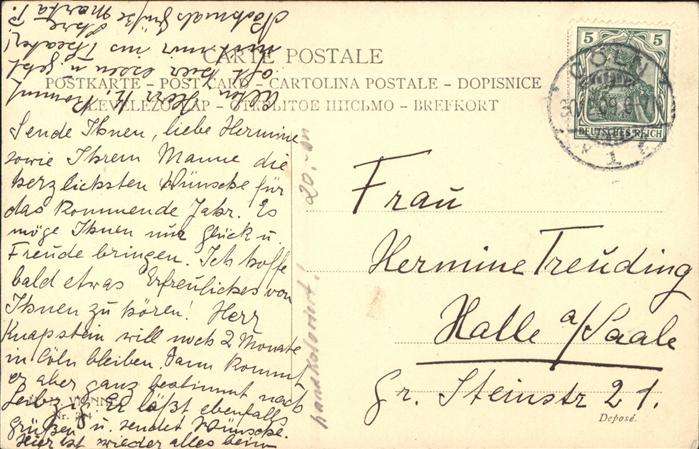 CARTE POSTALE
POSTKARTE - POST CARD - CARTOLINA POSTALE - DOPISNICE
LEVELEZŐ-LAP - ОТКРЫТОЕ ПИСЬМО - BREFKORT
5 5
CÖLN
09
1
DEUTSCHES REICH
Sende Ihnen, liebe Hermine
sowie Ihrem Manne die
herzlichsten Wünsche für
das kommende Jahr. Es
möge Ihnen nur Glück u.
Freude bringen. Ich hoffe
bald etwas Erfreuliches von
Ihnen zu hören! Herr
Knapstein will noch 2 Monate
in Cöln bleiben. Dann kommt
er aber ganz bestimmt nach
Leipzig. Er läßt ebenfalls
grüßen u. sendet Wünsche.
Hier ist wieder alles beim
Herr K. kommt
oft hier essen u. geht
mit mir ins Theater!
Nochmals Grüße
Ihre
Martha P.
Frau
Hermine Treuding
Halle a/Saale
Gr. Steinstr 21.
handkoloriert! 20.-
VIENNE
Nr.
Deposé.